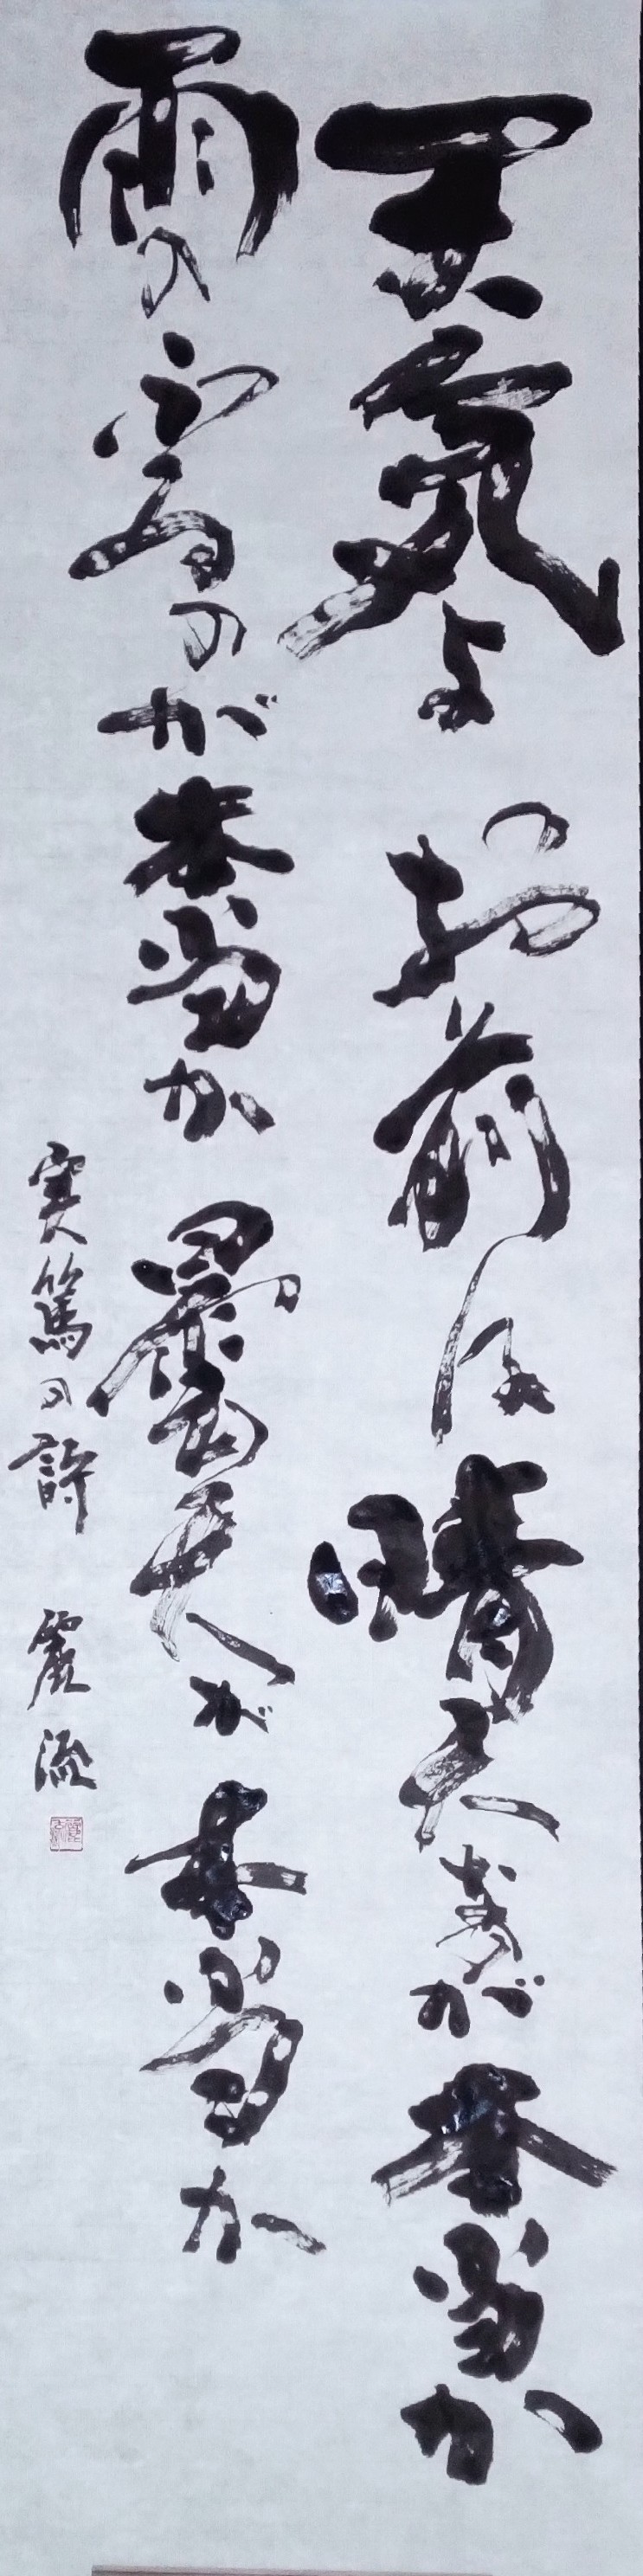 天氣よ お前は晴天なのが本当か
雨のふるのが本当か 曇天が本当か
實篤の詩